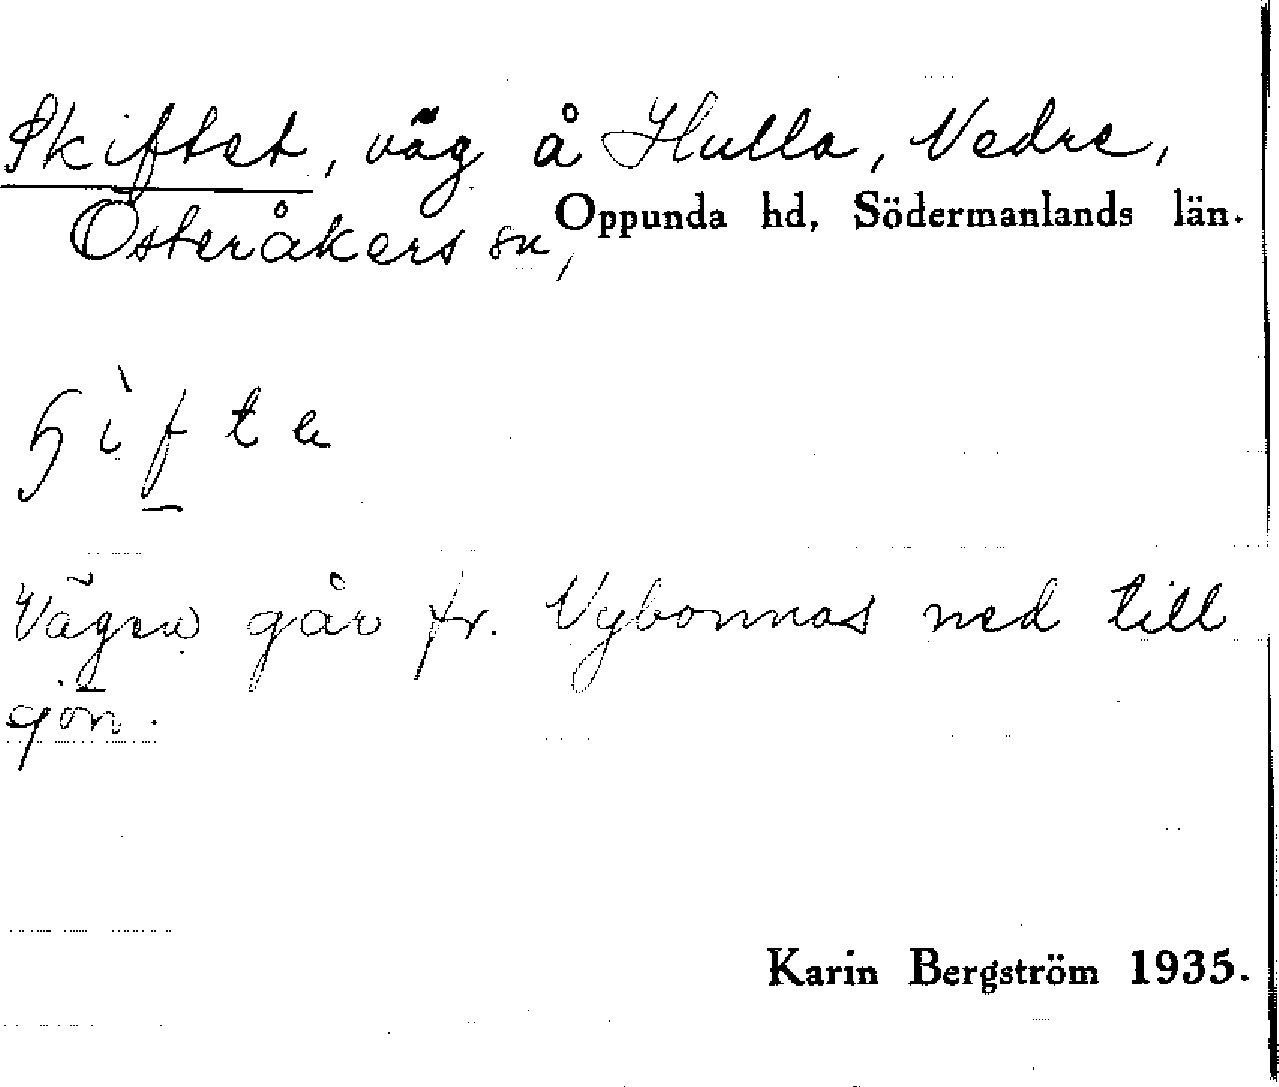 Skiftet, väg å Hulla, Nedre,
Österåkers sn, Oppunda hd, Södermanlands län.
Vägen går fr. Nybonnas ned till
sjön.
Karin Bergström 1935.